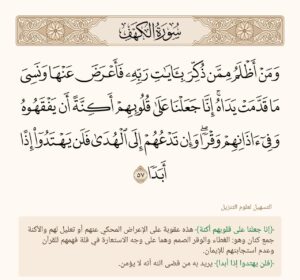 سُورَةُ الكَهْفِ
وَمَنْ أَظْلَمُ مِمَّن ذُكِّرَ بِـَٔايَٰتِ رَبِّهِۦ فَأَعْرَضَ عَنْهَا وَنَسِىَ
مَا قَدَّمَتْ يَدَاهُ ۚ إِنَّا جَعَلْنَا عَلَىٰ قُلُوبِهِمْ أَكِنَّةً أَن يَفْقَهُوهُ
وَفِىٓ ءَاذَانِهِمْ وَقْرًا ۖ وَإِن تَدْعُهُمْ إِلَى ٱلْهُدَىٰ فَلَن يَهْتَدُوٓا۟ إِذًا
أَبَدًا ٥٧
التسهيل لعلوم التنزيل
﴿إنا جعلنا على قلوبهم أكنة﴾ هذه عقوبة على الإعراض المحكي عنهم أو تعليل لهم والأكنة
جمع كنان وهو: الغطاء والوقر الصمم وهما على وجه الاستعارة في قلة فهمهم للقرآن
وعدم استجابتهم للإيمان.
﴿فلن يهتدوا إذا أبدا﴾: يريد به من قضى الله أنه لا يؤمن.